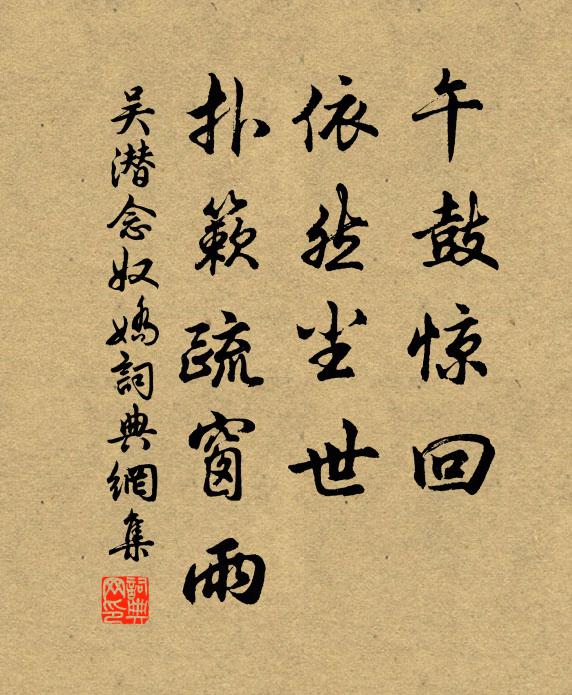 午鼓惊回
依然尘世
扑簌疏窗雨
吴潜念奴娇詞典網集
詞典网印